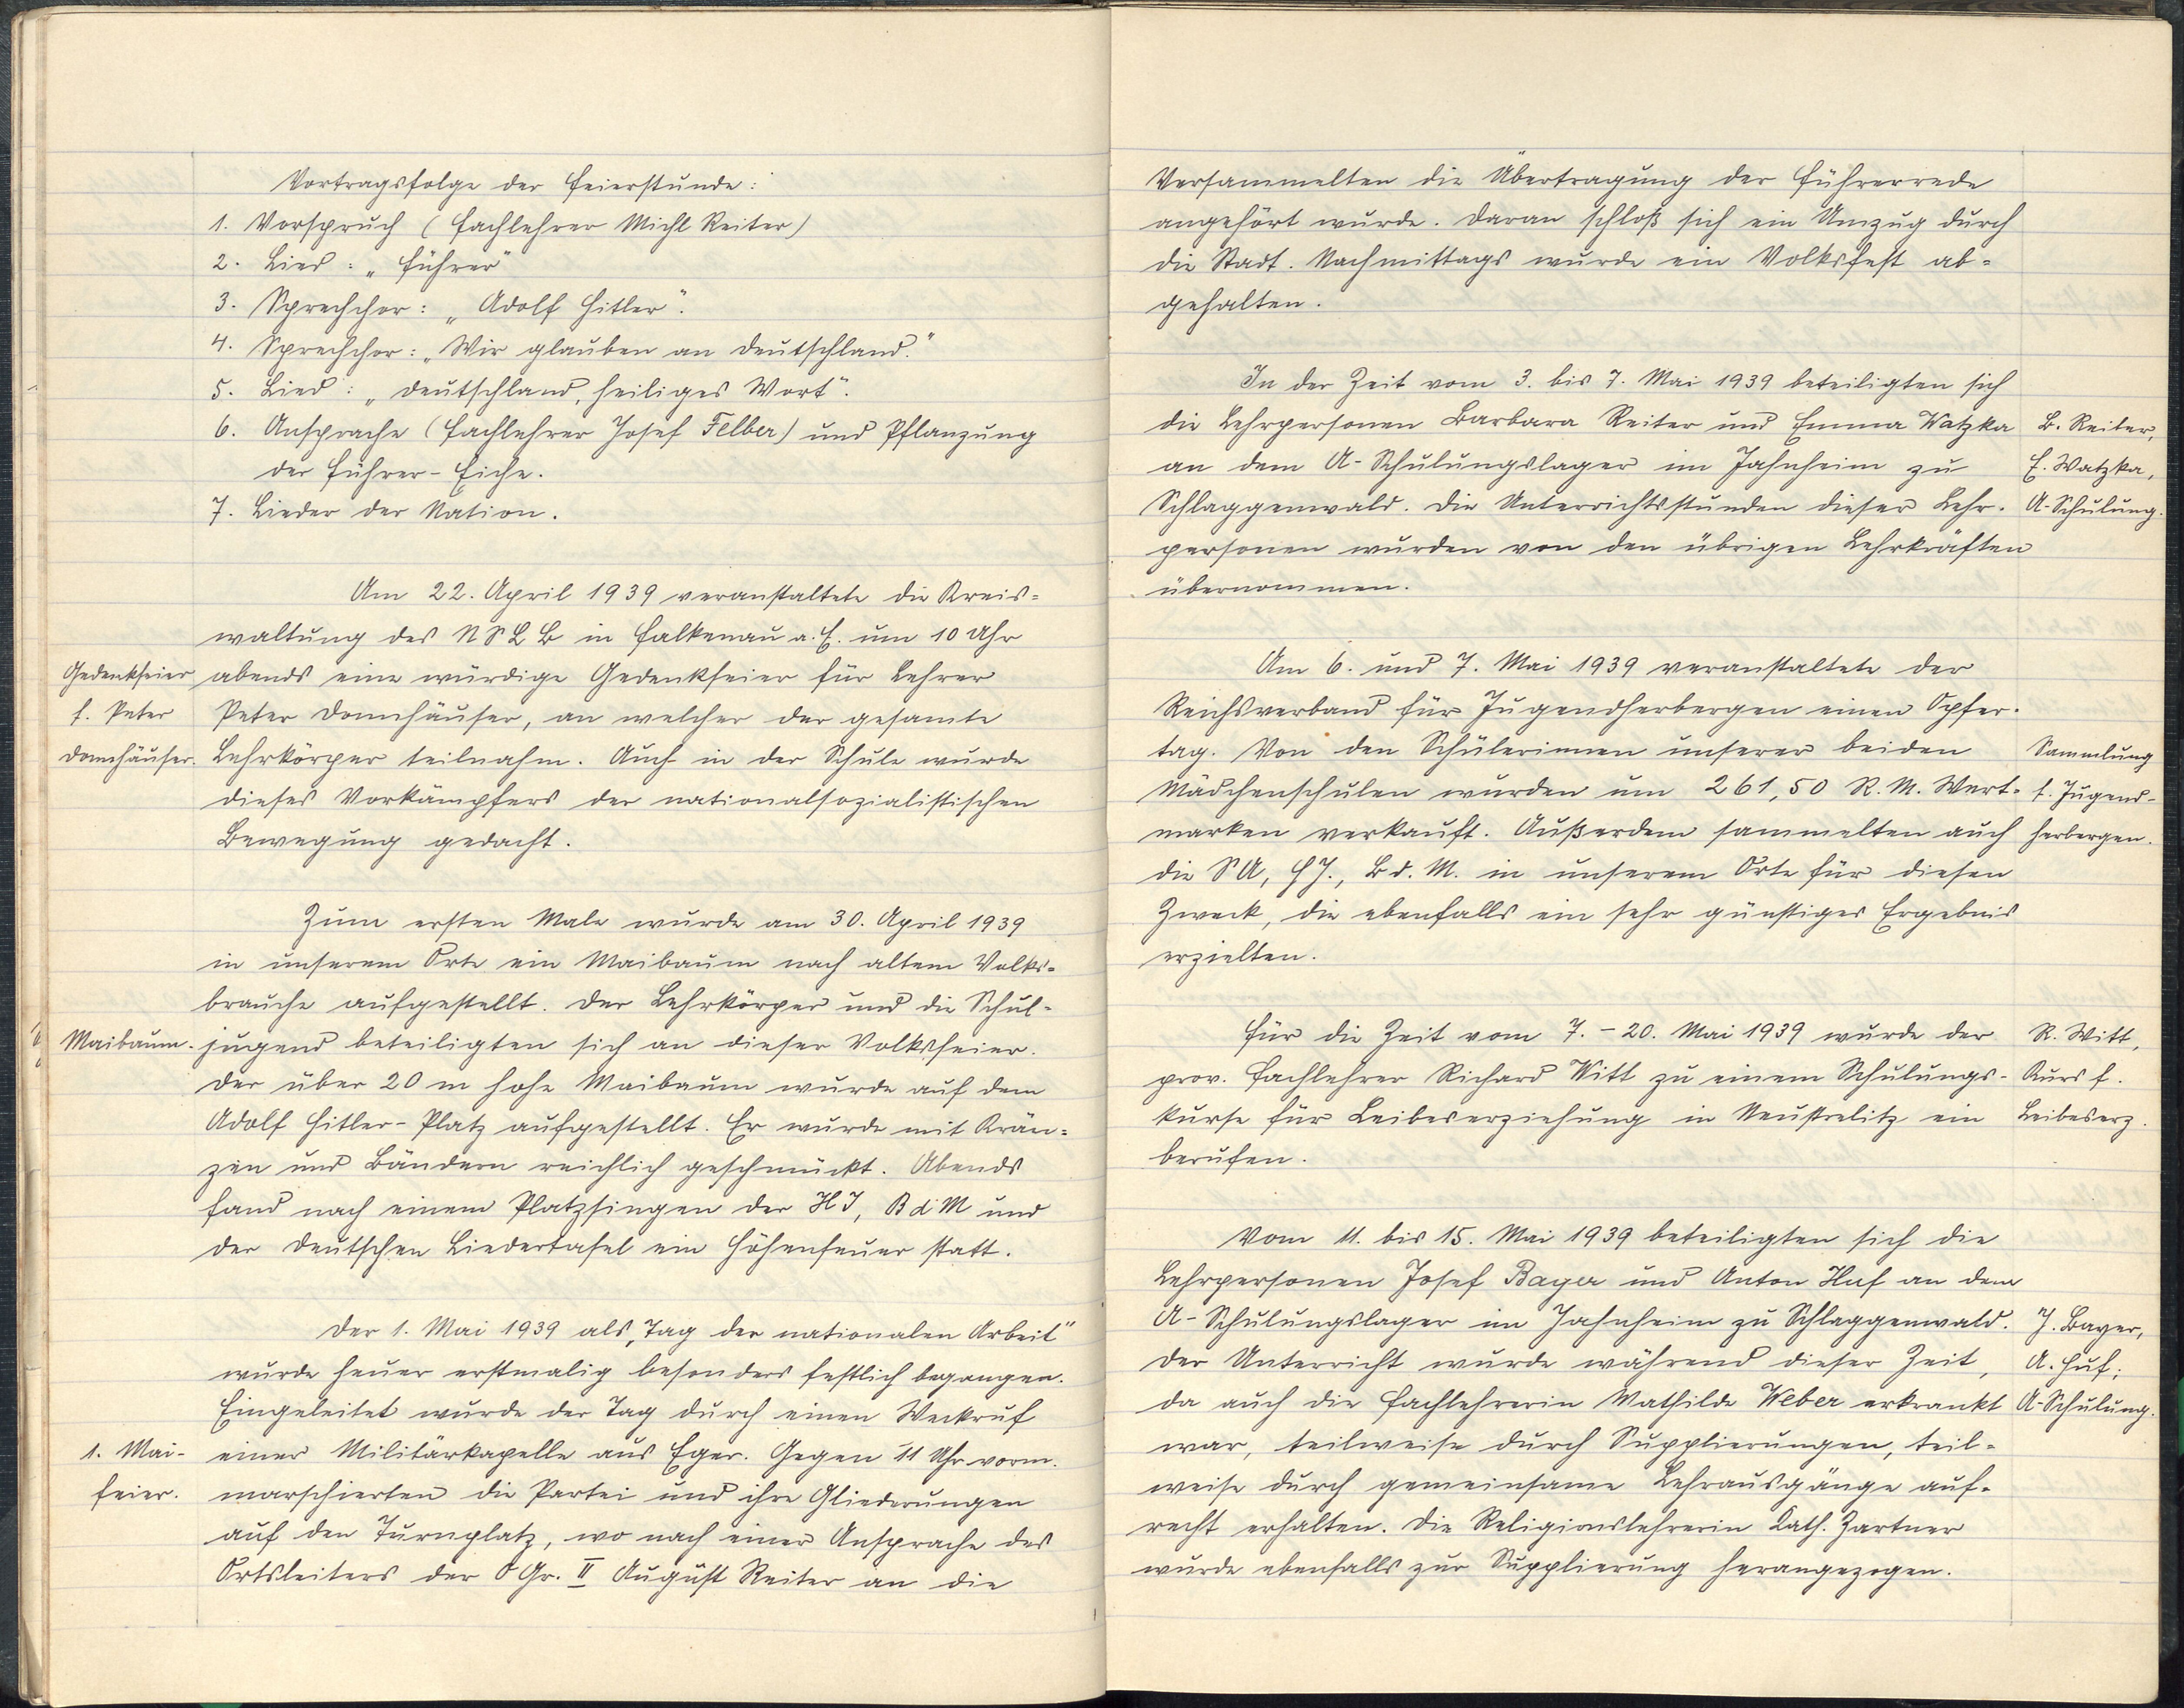 Vortragsfolge der Feierstunde:
1. Vorspruch (Fachlehrer Michl Reiter)
2. Lied: „Führer"
3. Sprechchor: „Adolf Hitler".
4. Sprechchor: „Wir glauben an Deutschland."
5. Lied: „Deutschland, heiliges Wort".
6. Ansprache (Fachlehrer Josef Felber) und Pflanzung
der Führer-Eiche.
7. Lieder der Nation.
Am 22. April 1939 veranstaltete die Kreis=
waltung des NSLB in Falkenau a. E. um 10 Uhr
Gedenkfeier abends eine würdige Gedenkfeier für Lehrer
f. Peter Peter Donnhäuser, an welcher der gesamte
Donnhäuser. Lehrkörper teilnahm. Auch in der Schule wurde
dieses Vorkämpfers der nationalsozialistischen
Bewegung gedacht.
Zum ersten Male wurde am 30. April 1939
in unserem Orte ein Maibaum nach altem Volks=
brauche aufgestellt. Der Lehrkörper und die Schul-
Maibaum. jugend beteiligten sich an dieser Volksfeier.
Der über 20 m hohe Maibaum wurde auf dem
Adolf Hitler-Platz aufgestellt. Er wurde mit Krän=
zen und Bändern reichlich geschmückt. Abends
fand nach einem Platzsingen der HJ, BdM und
der Deutschen Liedertafel ein Höhenfeuer statt.
Der 1. Mai 1939 als „Tag der nationalen Arbeit"
wurde heuer erstmalig besonders festlich begangen.
Eingeleitet wurde der Tag durch einen Weckruf
1. Mai- einer Militärkapelle aus Eger. Gegen 11 Uhr vorm.
feier. marschierten die Partei und ihre Gliederungen
auf den Turnplatz, wo nach einer Ansprache des
Ortsleiters der OGr. II August Reiter an die
Versammelten die Übertragung der Führerrede
angehört wurde. Daran schloß sich ein Umzug durch
die Stadt. Nachmittags wurde ein Volksfest ab=
gehalten.
In der Zeit vom 3. bis 7. Mai 1939 beteiligten sich
die Lehrpersonen Barbara Reiter und Emma Watzka B. Reiter,
an dem A-Schulungslager im Jahnheim zu E. Watzka,
Schlaggenwald. Die Unterrichtsstunden dieser Lehr- A-Schulung.
personen wurden von den übrigen Lehrkräften
übernommen.
Am 6. und 7. Mai 1939 veranstaltete der
Reichsverband für Jugendherbergen einen Opfer-
tag. Von den Schülerinnen unserer beiden Sammlung
Mädchenschulen wurden um 261,50 R.M. Wert- f. Jugend-
marken verkauft. Außerdem sammelten auch herbergen.
die SA, HJ., B d. M. in unserem Orte für diesen
Zweck, die ebenfalls ein sehr günstiges Ergebnis
erzielten.
Für die Zeit vom 7. - 20. Mai 1939 wurde der R. Witt,
prov. Fachlehrer Richard Witt zu einem Schulungs- Kurs f.
kurse für Leibeserziehung in Neustrelitz ein Leibeserz.
berufen.
Vom 11. bis 15. Mai 1939 beteiligten sich die
Lehrpersonen Josef Bayer und Anton Huf an dem
A-Schulungslager im Jahnheim zu Schlaggenwald. J. Bayer,
Der Unterricht wurde während dieser Zeit, A. Huf;
da auch die Fachlehrerin Mathilde Weber erkrankt A-Schulung.
war, teilweise durch Supplierungen, teil=
weise durch gemeinsame Lehrausgänge auf-
recht erhalten. Die Religionslehrerin Kath. Zartner
wurde ebenfalls zur Supplierung herangezogen.